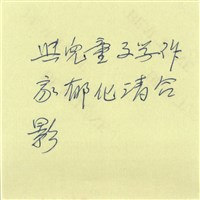 与儿童文学作
家郁化清合
影